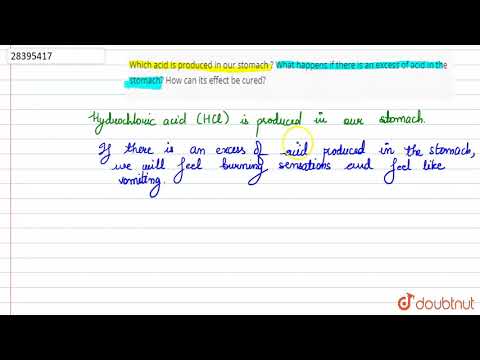 28395417
Which acid is produced in our stomach ? What happens if there is an excess of acid in the
stomach? How can its effect be cured?
Hydrochloric acid (HCl) is produced in our stomach.
If there is an excess of acid produced in the stomach,
we will feel burning sensations and feel like
vomiting.
doubtnut